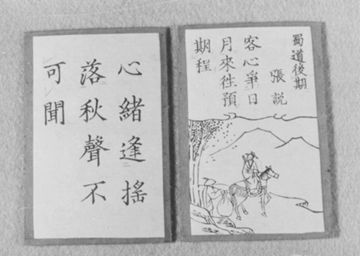 蜀道後期
張説
客心爭日
月來徃預
期程
心緒逢搖
落秋聲不
可聞